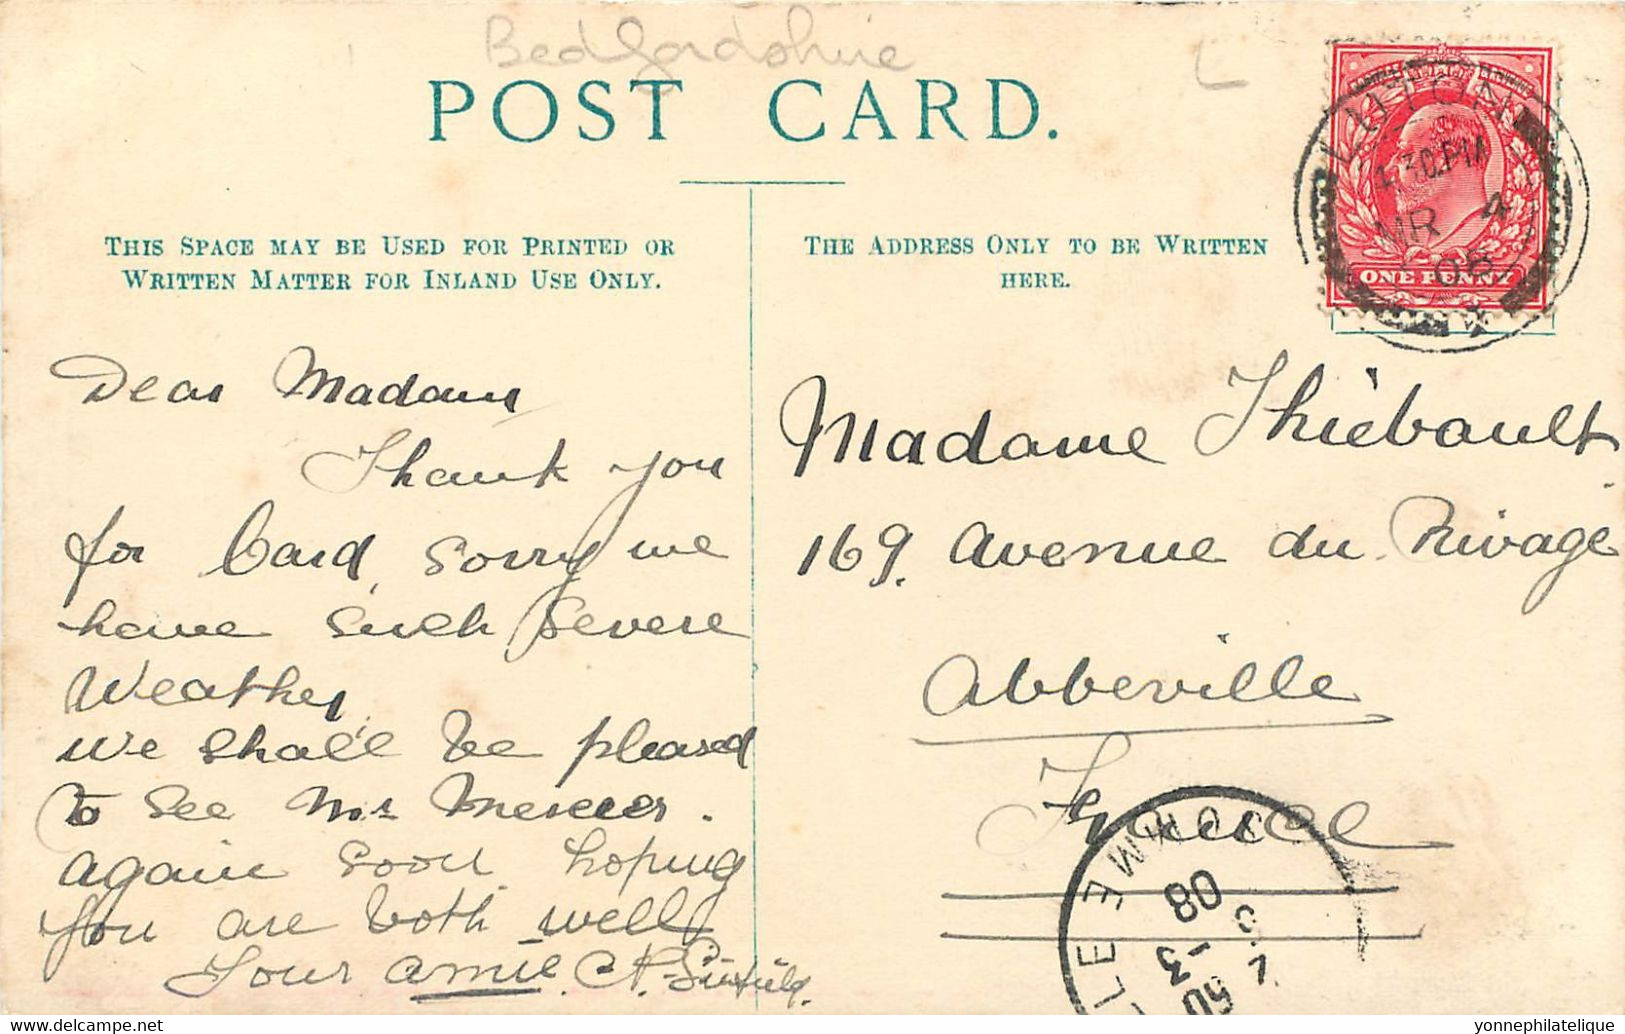 Bedfordshire
POST CARD.
THIS SPACE MAY BE USED FOR PRINTED OR
WRITTEN MATTER FOR INLAND USE ONLY.
THE ADDRESS ONLY TO BE WRITTEN
HERE.
LUTON
1.30 PM
MR 4
08
ONE PENNY
Dear Madam
Thank you
for Card, Sorry we
have such severe
Weather,
we shall be pleased
to see Mr Mercier.
again soon hoping
you are both well
Your amie C A.
Madame Thiébault
169. Avenue du Rivage
Abbeville
France
LE SOMME
5 -3
08
yonnephilatelie@yahoo.fr
www.philatelistique.com